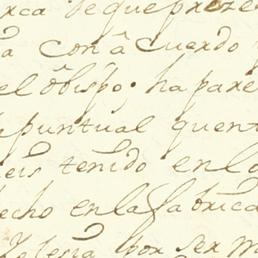 de que pareze
con acuerdo
el obispo. ha pare
puntual quent
eis tenido en lo
echo en la fabrica
Iglesia por ser m